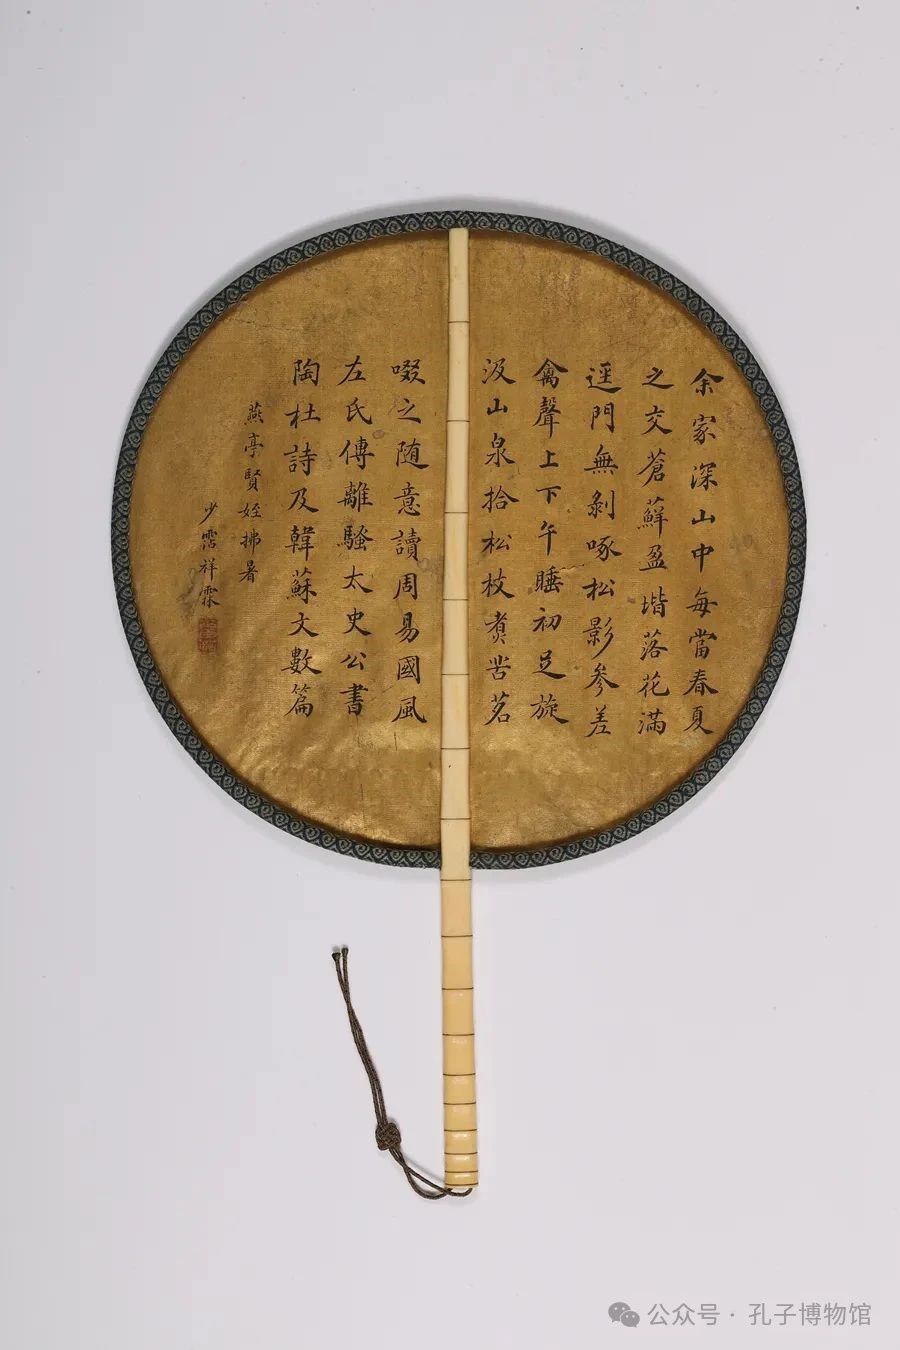 余家深山中每當春夏
之交蒼蘚盈堦落花滿
逕門無剝啄松影參差
禽聲上下午睡初足旋
汲山泉拾松枝煑苦茗
啜之随意讀周易國風
左氏傳離騷太史公書
陶杜詩及韓蘇文數篇
燕亭賢姪拂暑
少霑祥霖
公众号 · 孔子博物馆